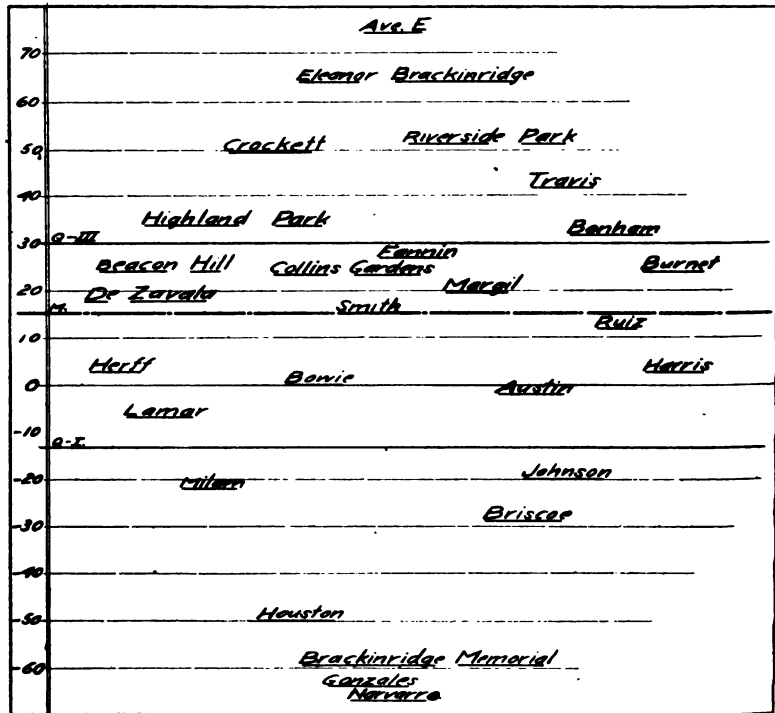 Ave. E
70
Eleanor Brackinridge
60
Crockett Riverside Park
50
Travis
40
Highland Park Bonham
Q-III
30
Fannin
Beacon Hill Collins Gardens Burnet
De Zavala Margil
20
M. Smith
Ruiz
10
Herff Bowie Harris
0 Austin
Lamar
-10
Q-I.
Milam Johnson
-20
Briscoe
-30
-40
Houston
-50
Brackinridge Memorial
-60
Gonzales
Navarro